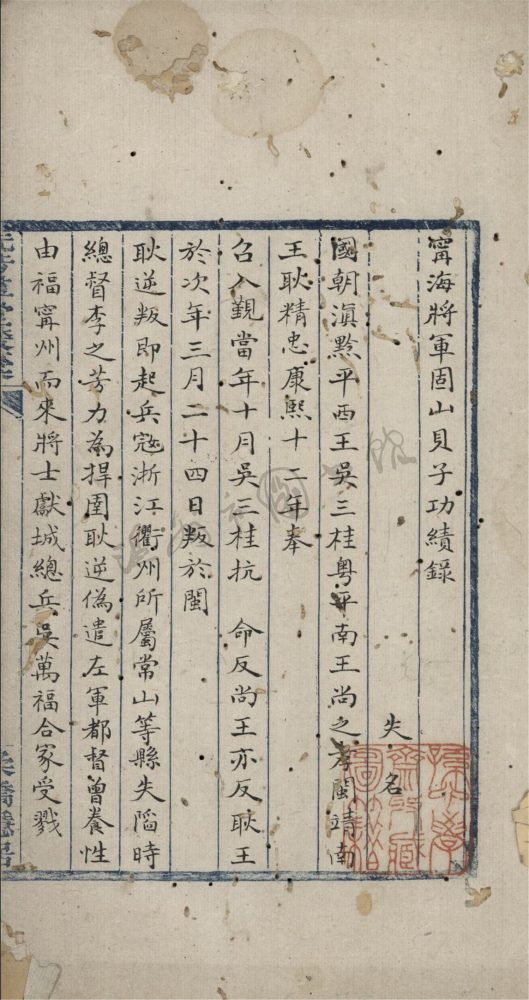 寗海將軍固山貝子功績錄
失名
國朝滇黔平西王吳三桂粵平南王尚之孝閩靖南
王耿精忠康熙十二年奉
召入覲當年十月吳三桂抗 命反尚王亦反耿王
於次年三月二十四日叛於閩
耿逆叛即起兵寇浙江衢州所屬常山等縣失陷時
總督李之芳力為捍圉耿逆偽遣左軍都督曾養性
由福寗州而來將士獻城總兵吳萬福合家受戮